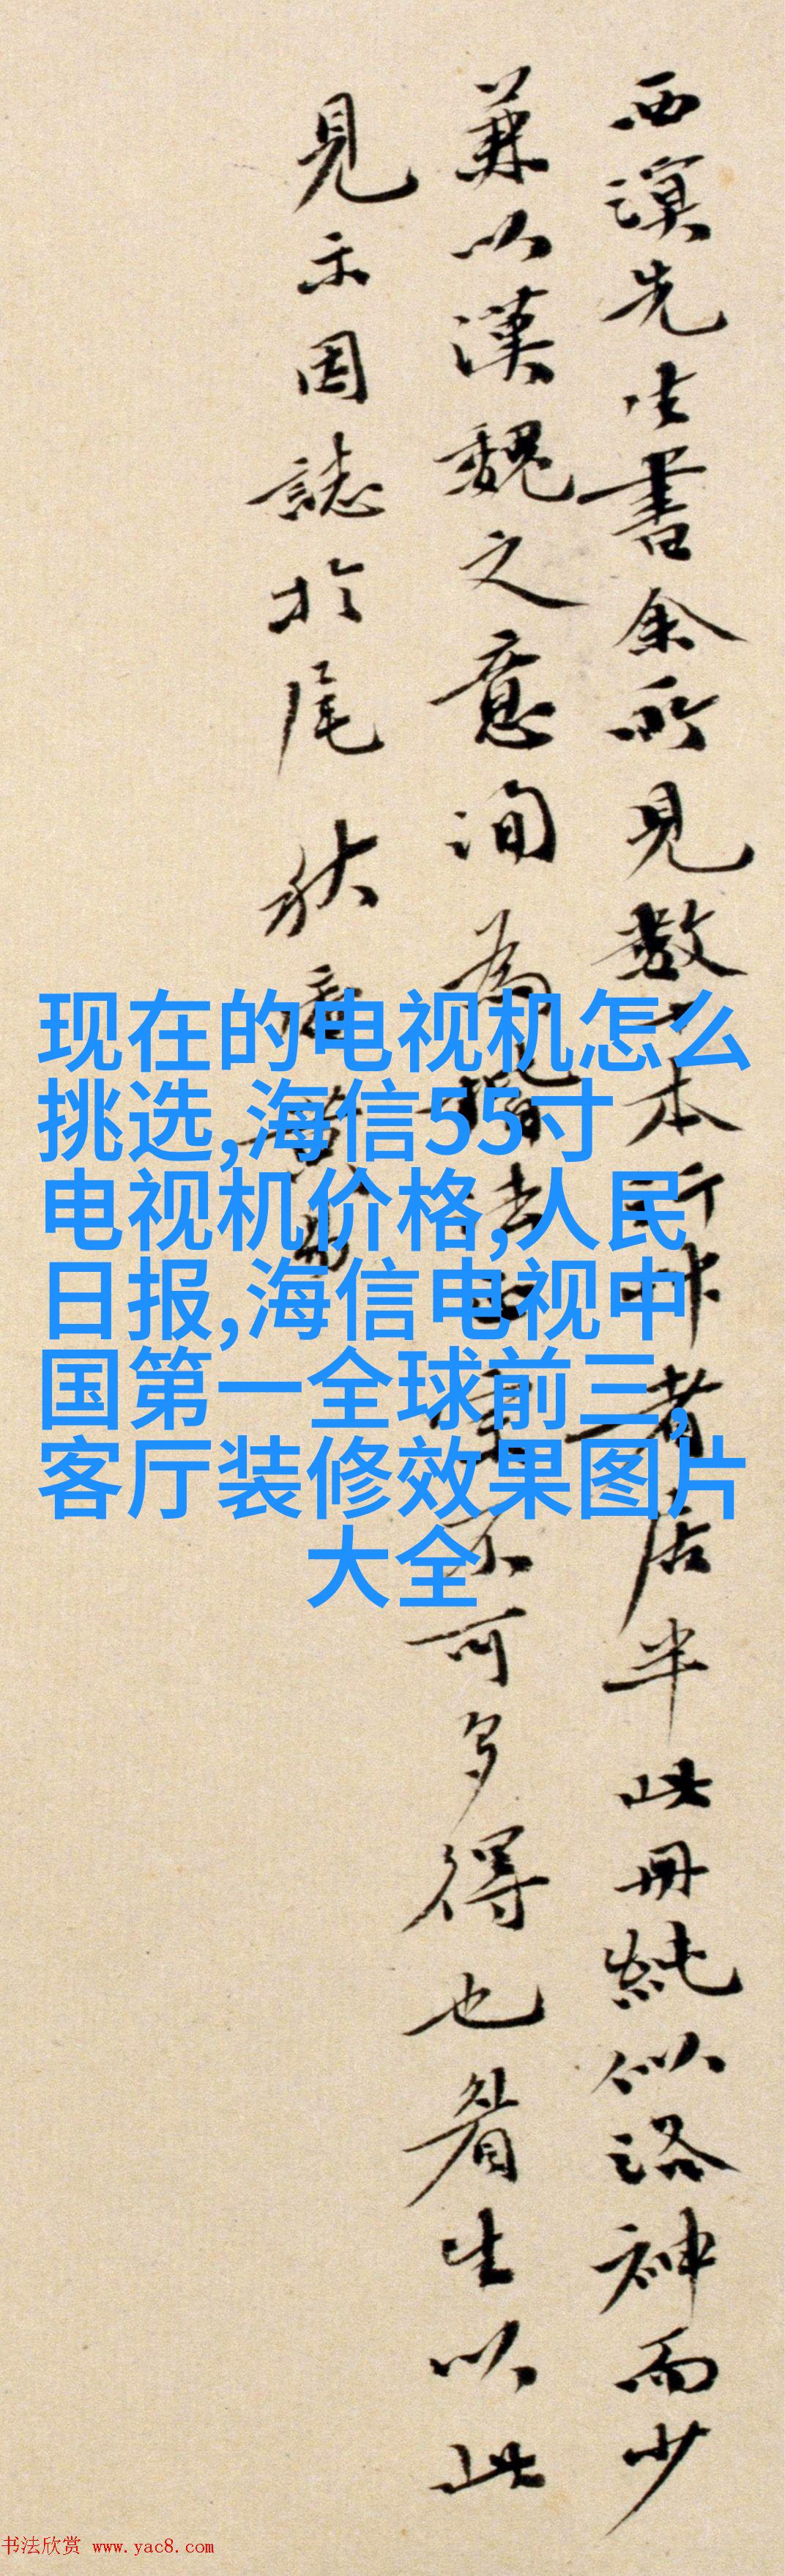 西溟先生書余所見數十本行楷者居半此冊純似洛神而少
兼以漢魏之意洵為
不可多得也眉生以此
見示因誌於尾 秋盦黃易
现在的电视机怎么
挑选,海信55寸
电视机价格,人民
日报,海信电视中
国第一全球前三,
客厅装修效果图片
大全
书法欣赏 www.yac8.com